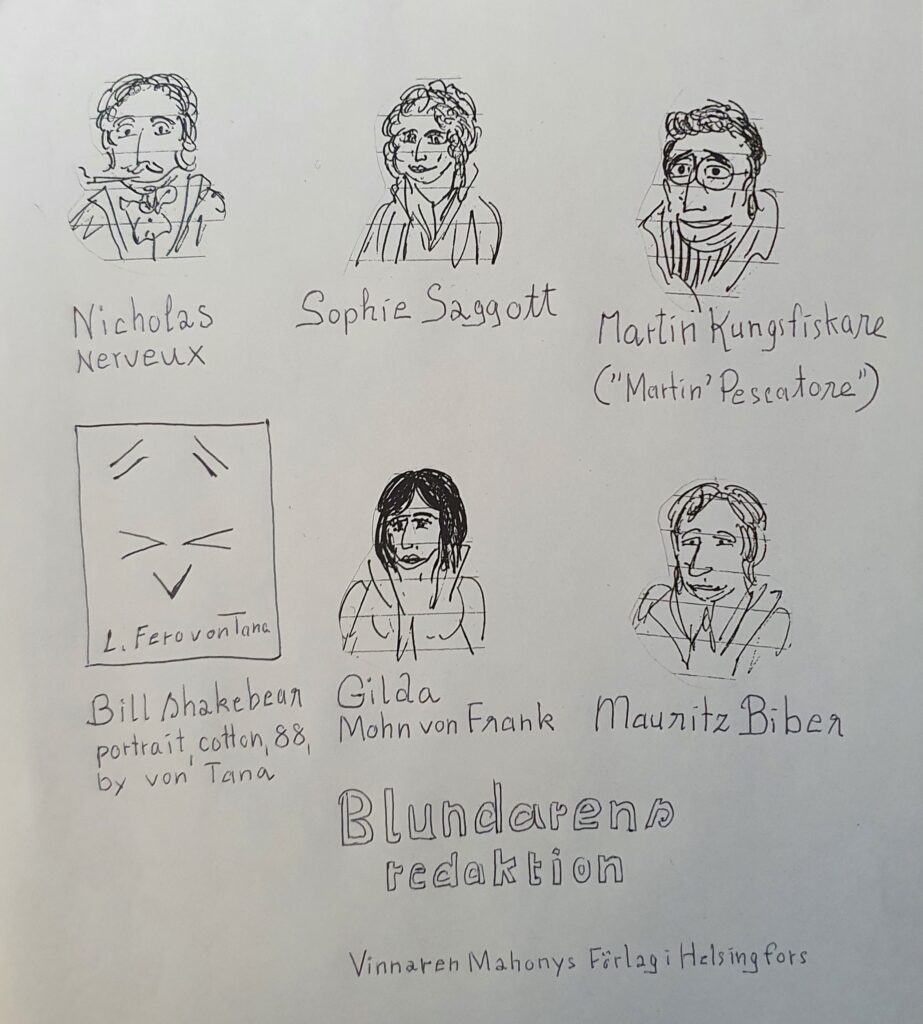 Nicholas
Nerveux
Sophie Saggott
Martin Kungsfiskare
("Martin' Pescatore")
L. Fero von Tana
Bill Shakebear
portrait, cotton, 88,
by von' Tana
Gilda
Mohn von Frank
Mauritz Biber
Blundarens
redaktion
Vinnaren Mahonys Förlag i Helsingfors